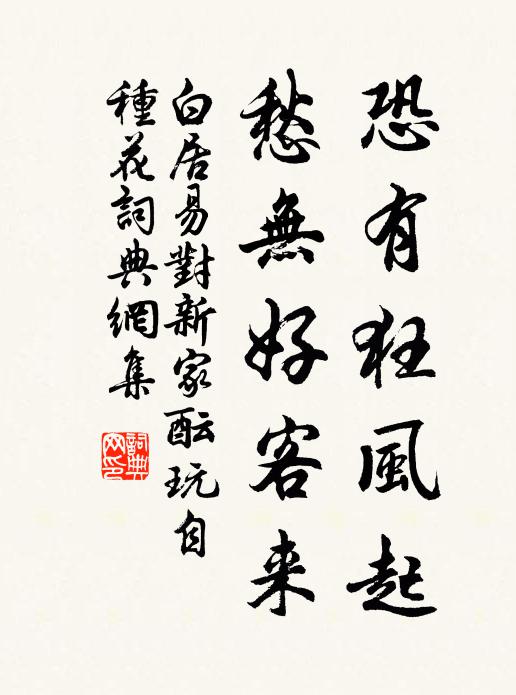 恐有狂風起
愁無好客来
白居易對新家酝玩自
種花詞典網集
詞典網印